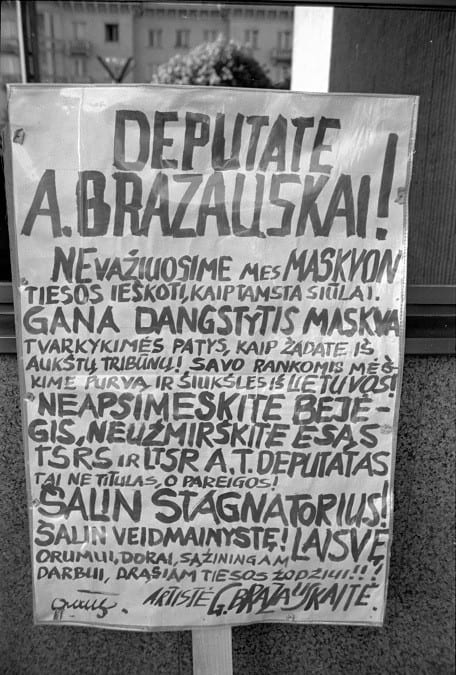 DEPUTATE
A. BRAZAUSKAI!
NEVAŽIUOSIME MES MASKVON
TIESOS IEŠKOTI, KAIP TAMSTA SIŪLAI.
GANA DANGSTYTIS MASKVA
TVARKYKIMĖS PATYS, KAIP ŽADATE IŠ
AUKŠTŲ TRIBŪNŲ! SAVO RANKOMIS MĖŠ-
KIME PURVĄ IR ŠIUKŠLES IŠ LIETUVOS!
NEAPSIMESKITE BEJĖ-
GIS, NEUŽMIRŠKITE ESĄS
TSRS IR LTSR A.T. DEPUTATAS
TAI NE TITULAS, O PAREIGOS!
ŠALIN STAGNATORIUS!
ŠALIN VEIDMAINYSTĘ! LAISVĘ
ORUMUI, DORAI, SĄŽININGAM
DARBUI, DRĄSIAM TIESOS ŽODŽIUI!!!
ARTISTĖ G. BRAZAUSKAITĖ.